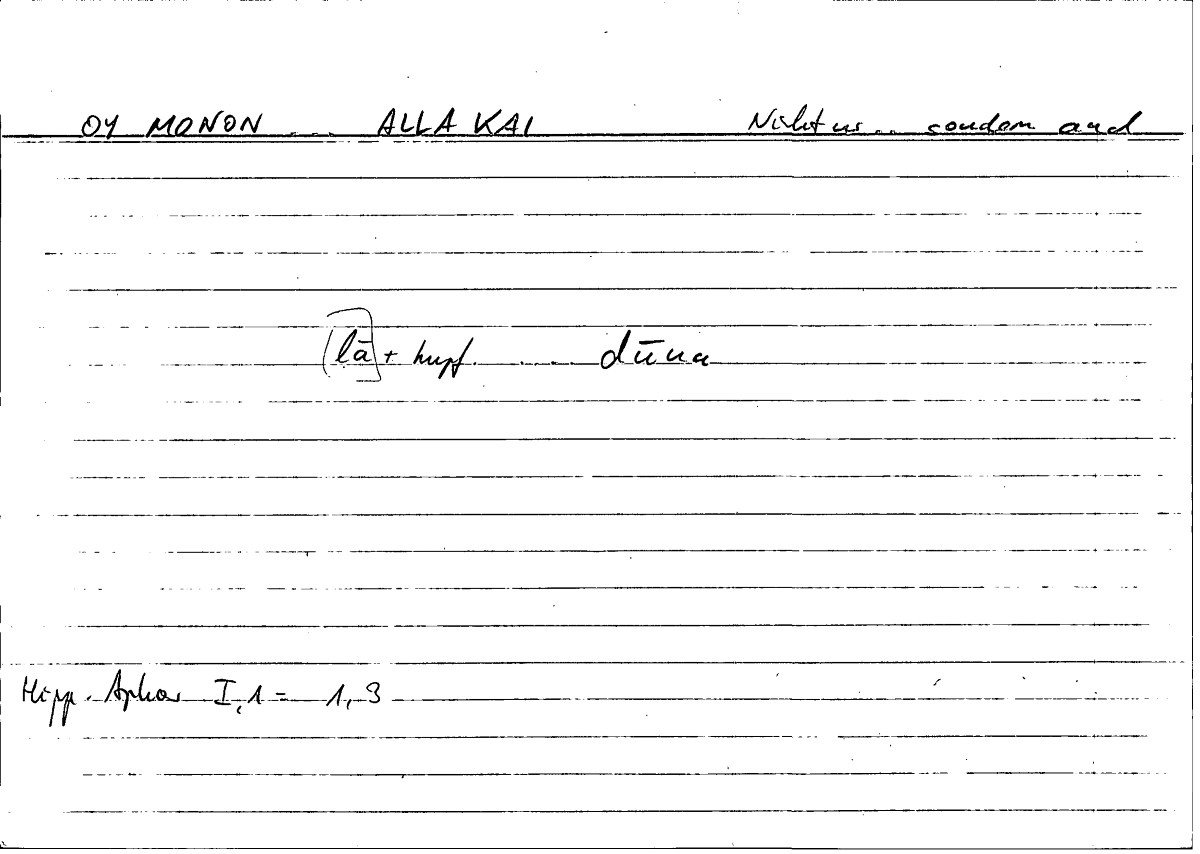 OY MONON ... ALLA KAI Nicht nur ... sondern auch
(lā) + ... dūna
Hipp. Aphor I,1 = 1,3